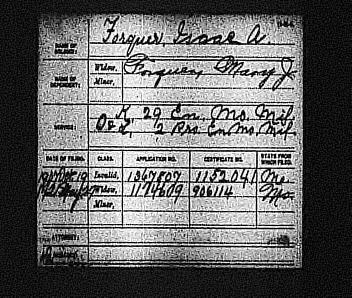 NAME OF SOLDIER: Forquer, Isaac A.
NAME OF DEPENDENT: Widow, Forquer, Mary J.
Minor,
SERVICE: K 29 En. Mo. Mil.
O&K, 2 Pro. En Mo. Mil.
DATE OF FILING. CLASS. APPLICATION NO. CERTIFICATE NO. STATE FROM WHICH FILED.
Invalid, 1367807 1152041 Mo.
Widow, 1174609 906114 Mo.
Minor,
ATTORNEY: